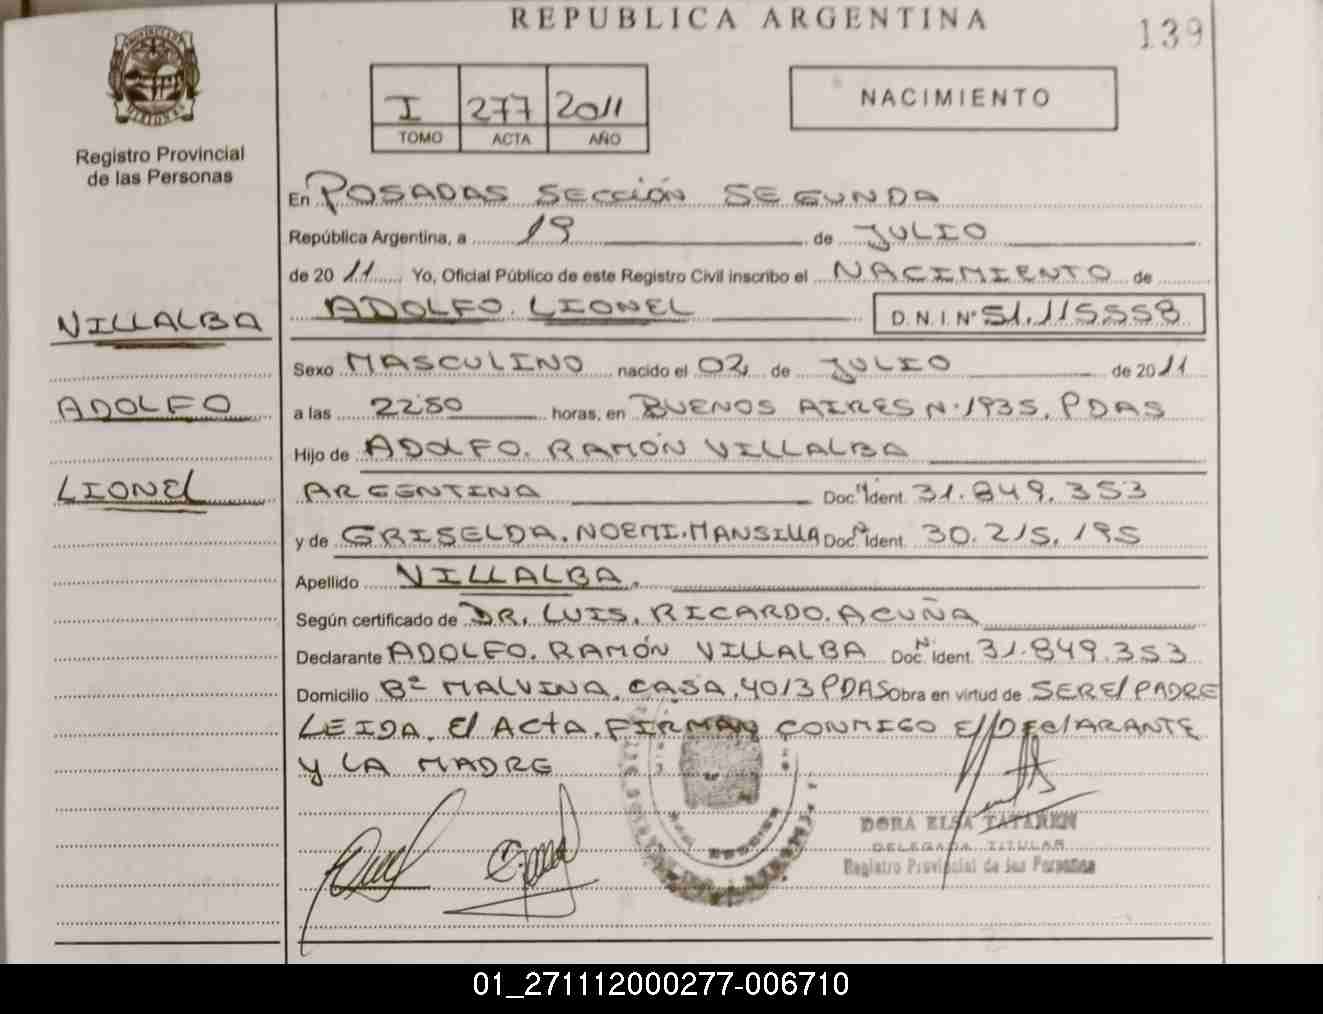 REPUBLICA ARGENTINA
139
PROVINCIA DE MISIONES
Registro Provincial
de las Personas
I 277 2011
TOMO ACTA AÑO
NACIMIENTO
En POSADAS SECCIÓN SEGUNDA
República Argentina, a 19 de JULIO
de 2011 Yo, Oficial Público de este Registro Civil inscribo el NACIMIENTO de
ADOLFO. LIONEL D.N.I. Nº 51.115558
VILLALBA
ADOLFO
LIONEL
Sexo MASCULINO nacido el 02 de JULIO de 2011
a las 2250 horas, en BUENOS AIRES N. 1935, PDAS
Hijo de ADOLFO. RAMÓN VILLALBA
ARGENTINA Doc. Ident. 31.849.353
y de GRISELDA. NOEMI. MANSILLA Doc. Ident. 30.215.195
Apellido VILLALBA.
Según certificado de DR. LUIS. RICARDO. ACUÑA
Declarante ADOLFO. RAMÓN VILLALBA Doc. N. Ident. 31.849.353
Domicilio Bº MALVINA. CASA. 4013 PDAS Obra en virtud de SER El PADRE
LEIDA. El ACTA. FIRMAN CONMIGO El DEClARANTE
Y LA MADRE
DORA ELSA TATAREN
DELEGADA TITULAR
Registro Provincial de las Personas
01_271112000277-006710